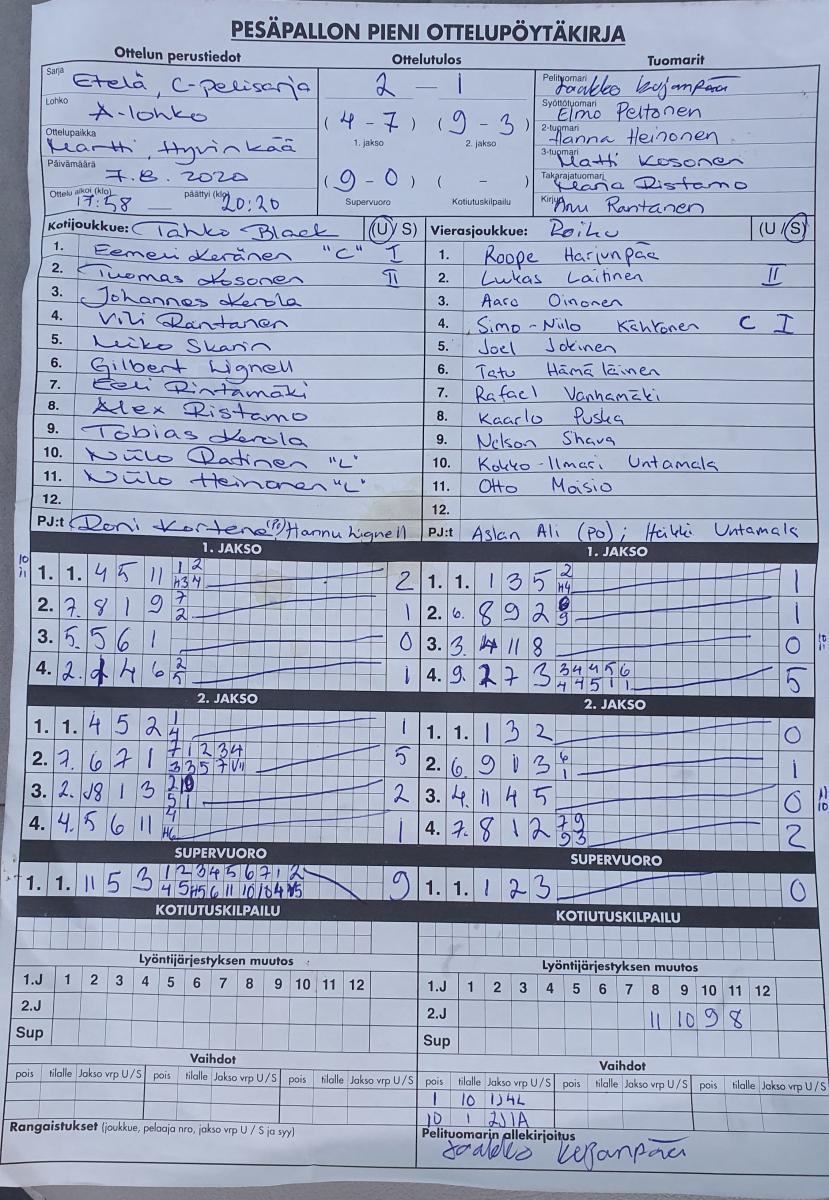 PESÄPALLON PIENI OTTELUPÖYTÄKIRJA
Ottelun perustiedot
Ottelutulos
Tuomarit
Sarja Etelä, C-pelisarja
Lohko A-lohko
Ottelupaikka Martti, Hyvinkää
Päivämäärä 7.8.2020
Ottelu alkoi (klo) 17:58 päättyi (klo) 20:20
2 - 1
(4 - 7) (9 - 3)
1. jakso 2. jakso
(9 - 0) ( - )
Supervuoro Kotiutuskilpailu
Pelituomari Jaakko Kujanpää
Syöttötuomari Elmo Peltonen
2-tuomari Hanna Heinonen
3-tuomari Matti Kosonen
Takarajatuomari Maria Ristamo
Kirjuri Anu Rantanen
Kotijoukkue: Tahko Black (U/S)
1. Eemeli Keränen "C" I
2. Tuomas Kosonen II
3. Johannes Kerola
4. Vili Rantanen
5. Miko Skarin
6. Gilbert Lignell
7. Eeli Rintamäki
8. Alex Ristamo
9. Tobias Kerola
10. Niilo Ratinen "L"
11. Niilo Heinonen "L"
12.
PJ:t Roni Kortene (PO) Hannu Lignell
Vierasjoukkue: Roihu (U/S)
1. Roope Harjunpää
2. Lukas Laitinen II
3. Aaro Oinonen
4. Simo-Niilo Kähkönen C I
5. Joel Jokinen
6. Tatu Hämäläinen
7. Rafael Vanhamäki
8. Kaarlo Puska
9. Nelson Shava
10. Kokko-Ilmari Untamala
11. Otto Moisio
12.
PJ:t Aslan Ali (PO); Heikki Untamala
1. JAKSO
1. 1. 4 5 11 1 2 H3 4 2
2. 7. 8 1 9 7 2 1
3. 5. 5 6 1 0
4. 2. 1 4 6 2 5 1
2. JAKSO
1. 1. 4 5 2 1 4 1
2. 7. 6 7 1 7 1 2 3 4 3 3 5 7 5
3. 2. 8 1 3 2 5 1 2
4. 4. 5 6 11 4 H6 1
SUPERVUORO
1. 1. 11 5 3 1 2 3 4 5 6 7 1 2 9
KOTIUTUSKILPAILU
1. JAKSO
1. 1. 1 3 5 2 H4 1
2. 6. 8 9 2 6 9 1
3. 3. 4 11 8 0
4. 9. 2 7 3 3 4 4 5 6 4 4 5 1 1 5
2. JAKSO
1. 1. 1 3 2 0
2. 6. 9 1 3 6 1 1
3. 4. 11 4 5 0
4. 7. 8 1 2 7 9 9 3 2
SUPERVUORO
1. 1. 1 2 3 0
KOTIUTUSKILPAILU
Lyöntijärjestyksen muutos
1.J 1 2 3 4 5 6 7 8 9 10 11 12
2.J
Sup
Vaihdot
pois tilalle Jakso vrp U/S pois tilalle Jakso vrp U/S pois tilalle Jakso vrp U/S
Rangaistukset (joukkue, pelaaja nro, jakso vrp U / S ja syy)
Lyöntijärjestyksen muutos
1.J 1 2 3 4 5 6 7 8 9 10 11 12
2.J 11 10 9 8
Sup
Vaihdot
pois tilalle Jakso vrp U/S pois tilalle Jakso vrp U/S pois tilalle Jakso vrp U/S
1 10 1J4L
10 1 2J1A
Pelituomarin allekirjoitus
Jaakko Kujanpää